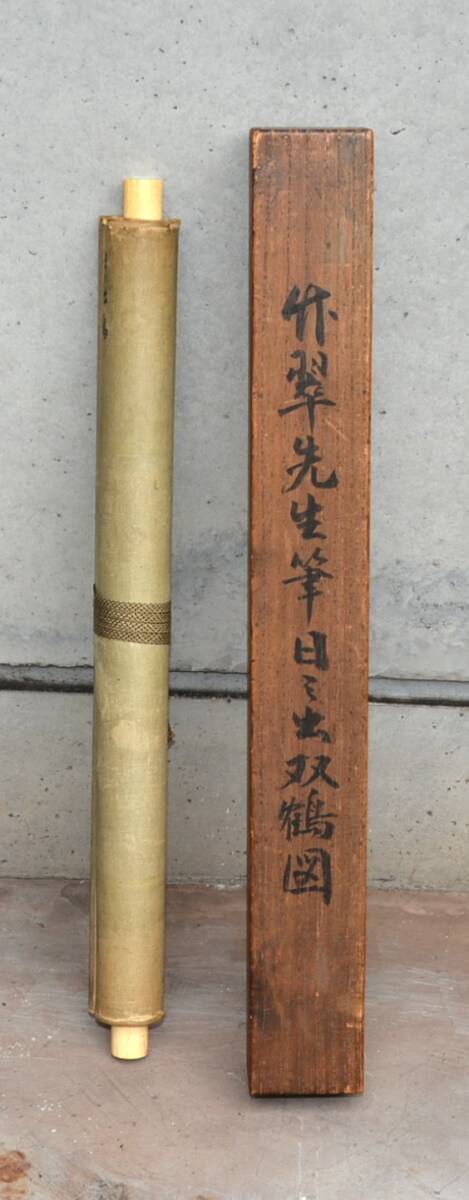 竹翠先生筆日之出双鶴図